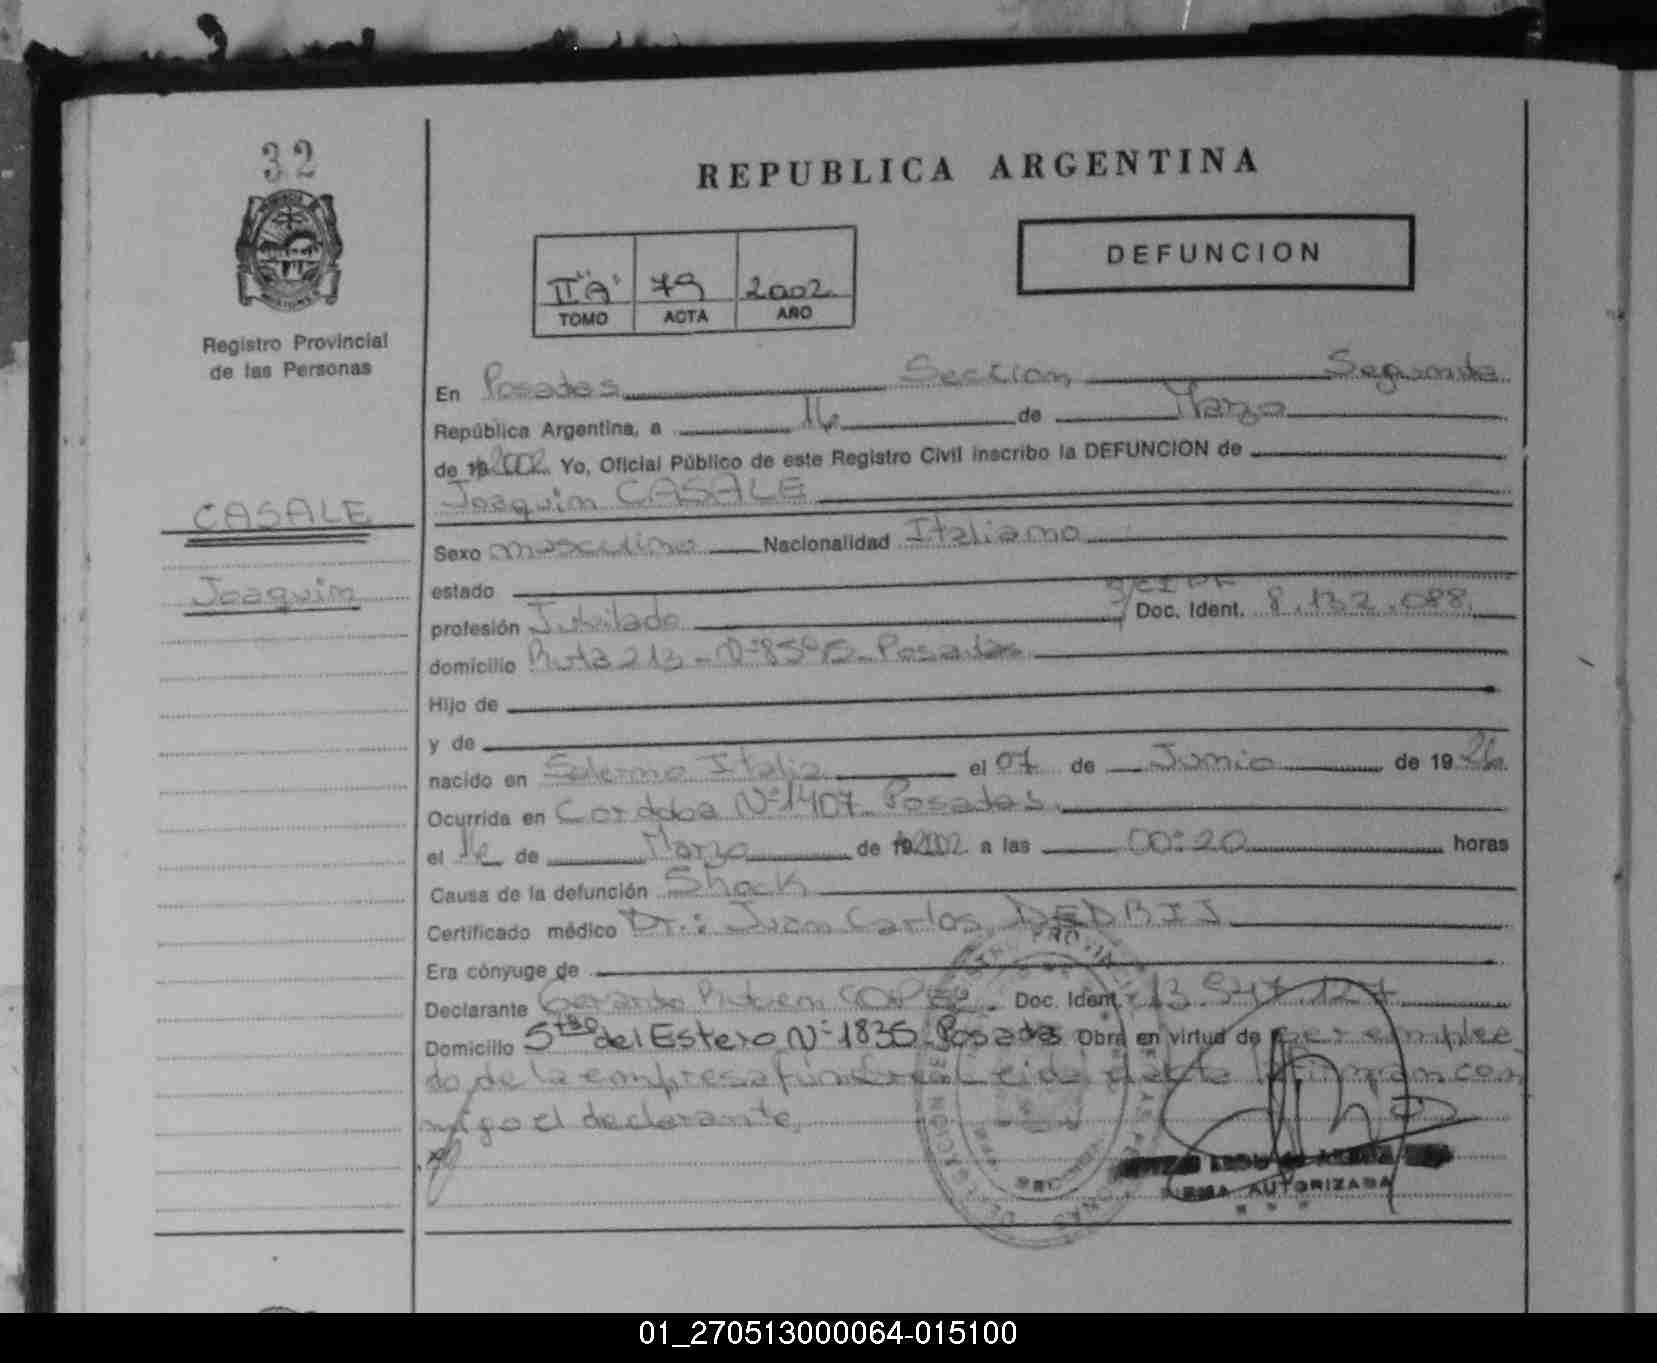 32
REPUBLICA ARGENTINA
DEFUNCION
II "A" 79 2002
TOMO ACTA AÑO
Registro Provincial
de las Personas
CASALE
Joaquin
En Posadas Seccion Segunda
República Argentina, a 16 de Marzo
de 19 2002 Yo, Oficial Público de este Registro Civil inscribo la DEFUNCION de
Joaquin CASALE
Sexo masculino Nacionalidad Italiano
estado
profesión Jubilado Doc. Ident. 8.132.088
domicilio Ruta 213 - Nº 8595 - Posadas
Hijo de
y de
nacido en Salerno Italia el 07 de Junio de 19 26
Ocurrida en Cordoba Nº 1407 Posadas
el 16 de Marzo de 19 2002 a las 00:20 horas
Causa de la defunción Shock
Certificado médico Dr.: Juan Carlos
Era cónyuge de
Declarante Gerardo Ruben Doc. Ident. 13.947.127
Domicilio Stgo del Estero Nº 1835 Posadas Obra en virtud de ser emplea
do de la empresa funeral leida el acta la firman con
migo el declarante
FIRMA AUTORIZADA
01_270513000064-015100